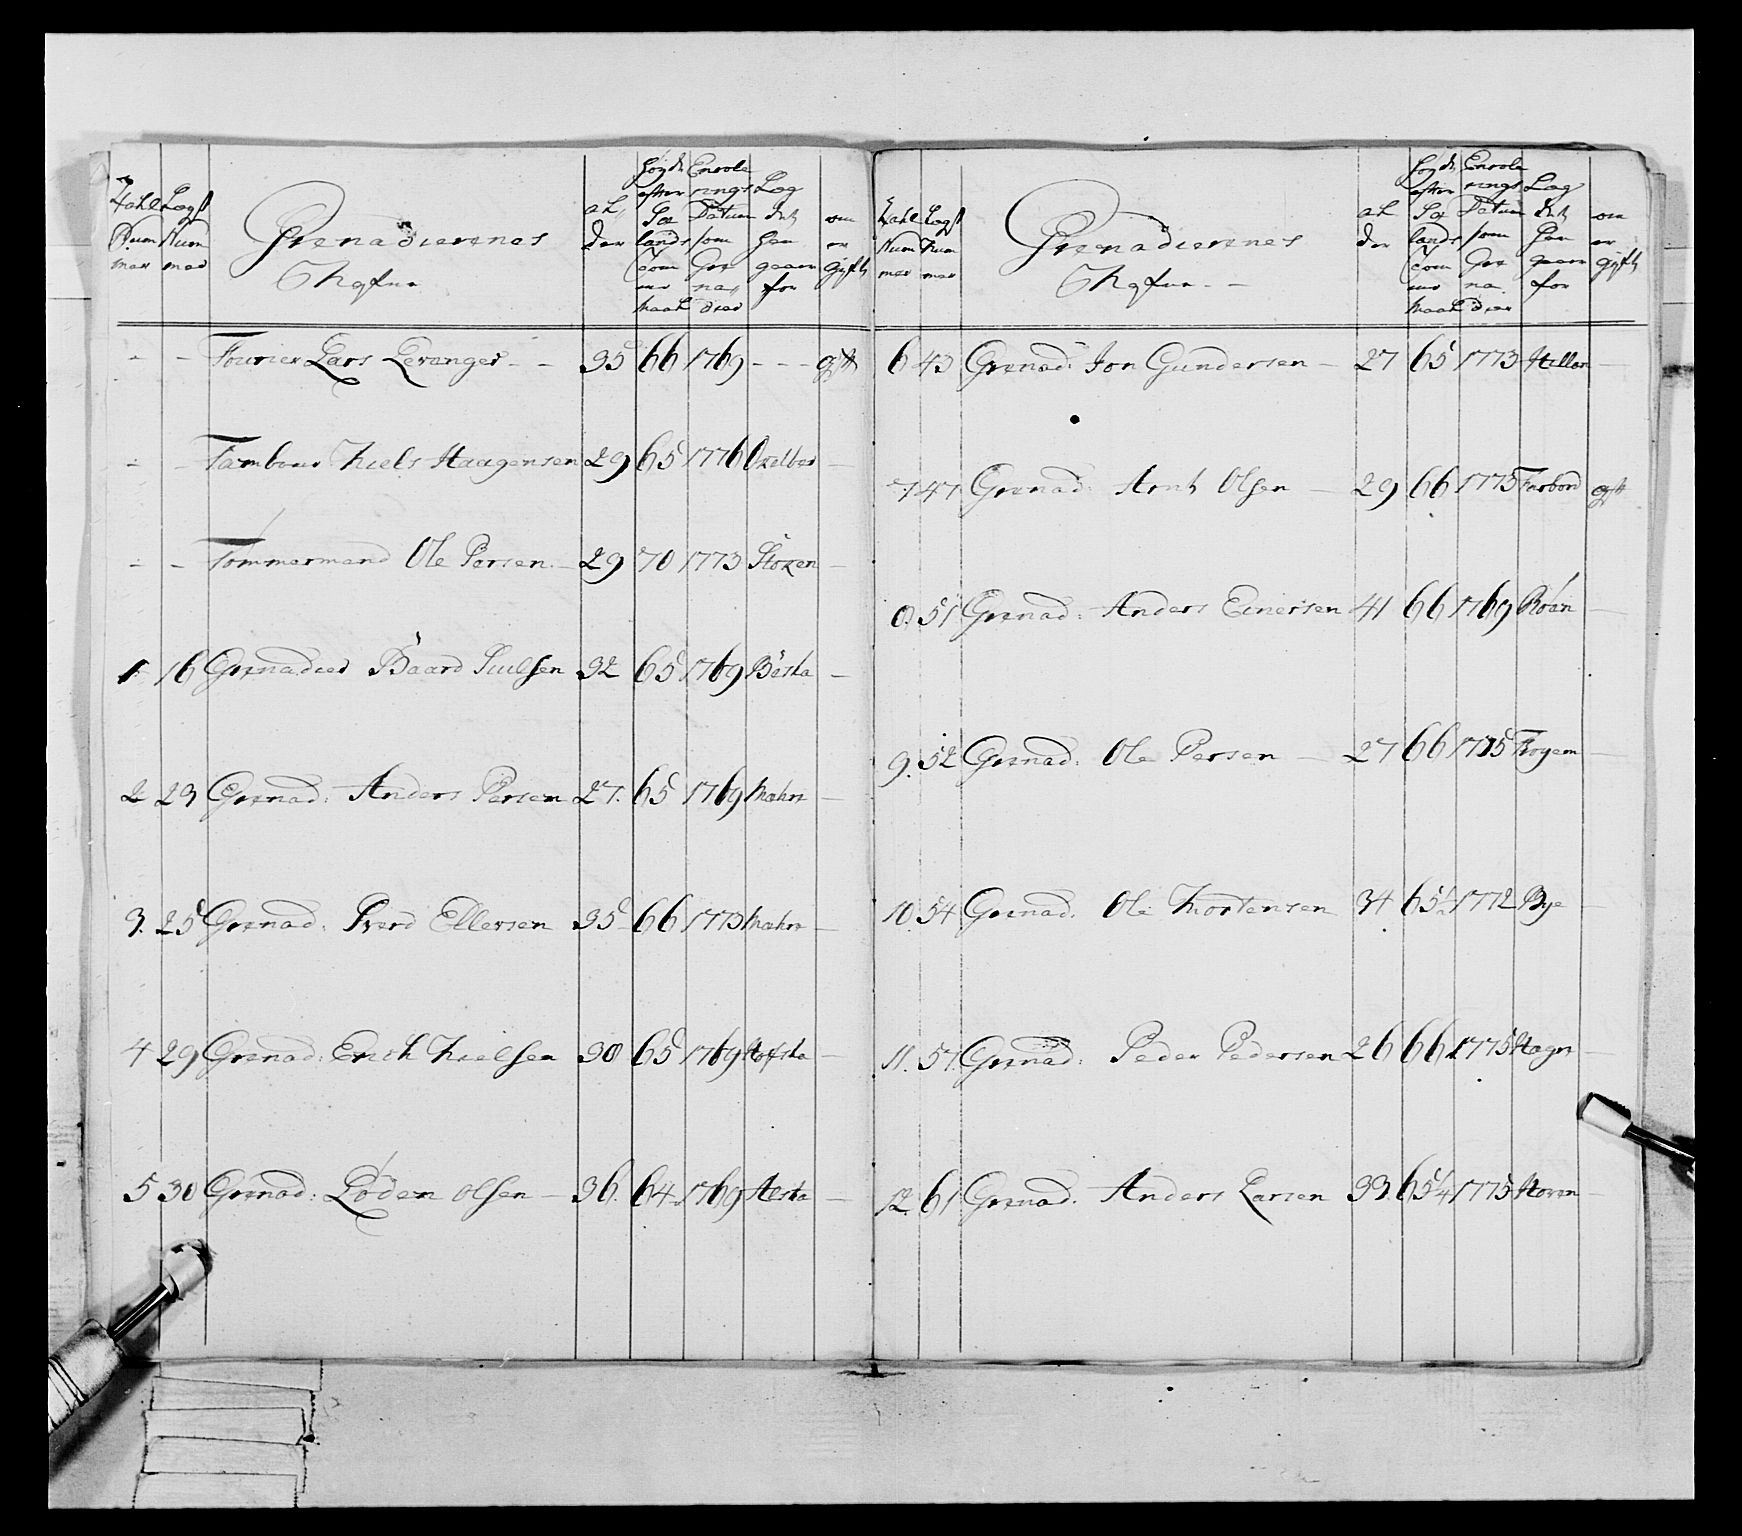 Zahl Num mer
Lægs Num mer
Grenadierernes Nafne
al der
høyde efter Sælands Com me Maal
Enrole rings Datum som Gre na dier
Læg det han gaaer for
om er gift
- - Fourier Lars Levanger - - 35 66 1769 - - - gift
- - Tambour Niels Haagensen 29 65 1776 -
- - Tømmermand Ole Persen - 29 70 1773 Støren -
1 16 Grenadeer Baard Juelsen 32 65 1769 -
2 23 Grenad: Anders Persen 27. 65 1769 -
3. 25 Grenad: Ellersen 35 66 1773 -
4 29 Grenad: Erich Nielsen 30 65 1769 -
5 30 Grenad: Olsen - 36. 64 1769 -
Zahl Num mer
Lægs Num mer
Grenadierernes Nafne - -
al der
høyde efter Sælands Com me Maal
Enrole rings Datum som Gre na dier
Læg det han gaaer for
om er gift
6 43 Grenad: Jon Gundersen - 27 65 1773 -
7. 47 Grenad: Arnt Olsen - 29 66 1775 gift
8. 51 Grenad: Anders Einersen 41 66 1769 Roan -
9. 52 Grenad: Ole Persen - 27 66 1775 -
10. 54 Grenad: Ole Mortensen 34 65½ 1772 Bye -
11. 57. Grenad: Peder Pedersen 26 66 1775 -
12. 61 Grenad. Anders Larsen 33. 65¼ 1775 -